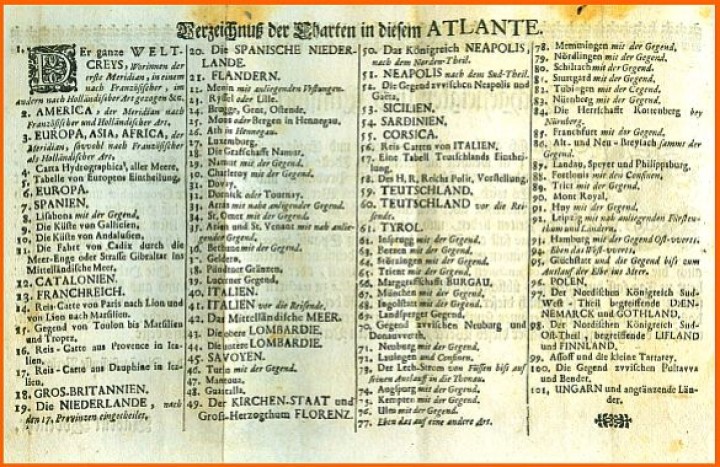 Verzeichnuß der Charten in diesem ATLANTE.
1. DEr ganze WELT-
CREYS, Worinnen der
erste Meridian, in einem
nach Französischer, im
andern nach Holländischer Art gezogen
2. AMERICA, der Meridian nach
Französischer und Holländischer Art.
3. EUROPA, ASIA, AFRICA, der
Meridian, sowohl nach Französischer
als Holländischer Art.
4. Carta Hydrographica, aller Meere,
5. Tabelle von Europens Eintheilung,
6. EUROPA.
7. SPANIEN.
8. Lisabona mit der Gegend,
9. Die Küste von Gallicien,
10. Die Küste von Andalusien,
11. Die Fahrt von Cadix durch die
Meer-Enge oder Strasse Gibraltar ins
Mittelländische Meer,
12. CATALONIEN.
13. FRANCHREICH.
14. Reis-Carte von Paris nach Lion und
von Lion nach Marsilien.
15. Gegend von Toulon bis Marsilien
und Tropez,
16. Reis-Carte aus Provence in Ita-
lien,
17. Reis-Carte aus Dauphine in Ita-
lien,
18. GROS-BRITANNIEN.
19. Die NIEDERLANDE, nach
den 17. Provinzen eingetheilet,
20. Die SPANISCHE NIEDER-
LANDE.
21. FLANDERN.
22. Menin mit anliegenden Vestungen.
23. Ryssel oder Lille.
24. Brugge, Gent, Ostende,
25. Mons oder Bergen in Hennegau,
26. Ath in Hennegau.
27. Luxemburg.
28. Die Grafschafft Namur,
29. Namur mit der Gegend.
30. Charleroy mit der Gegend,
31. Dovay,
32. Dornick oder Tournay.
33. mit nahe anligender Gegend
34. St. Omer mit der Gegend,
35. und St. Venant mit nah anlie-
gender Gegend
36. mit der Gegend,
37. Geldern,
38. Pündtner Gränzen,
39. Lucerner Gegend,
40. ITALIEN.
41. ITALIEN vor die Reisende,
42. Das Mittelländische MEER.
43. Die obere LOMBARDIE.
44. Die untere LOMBARDIE.
45. SAVOYEN.
46. Turin mit der Gegend,
47. Mantoua,
48. Guastalla,
49. Der KIRCHEN-STAAT und
Groß-Herzogthum FLORENZ.
50. Das Königreich NEAPOLIS,
nach dem Norden-Theil.
51. NEAPOLIS nach dem Sud-Theil.
52. Die Gegend zwischen Neapolis und
Gaëta,
53. SICILIEN.
54. SARDINIEN.
55. CORSICA.
56. Reis Carten von ITALIEN,
57. Eine Tabell Teutschlands Einthei-
lung,
58. Des H. R. Reichs Polit. Vorstellung,
59. TEUTSCHLAND.
60. TEUTSCHLAND vor die Rei-
sende.
61. TYROL.
62. Insprugg mit der Gegend.
63. mit der Gegend,
64. mit der Gegend,
65. Trient mit der Gegend,
66. Marggrafschafft BURGAU.
67. München mit der Gegend,
68. Ingolstatt mit der Gegend,
69. Landsperger Gegend,
70. Gegend zwischen Neuburg und
Donauwerth,
71. Neuburg mit der Gegend,
72. Lauingen und Confinen.
73. Der Lech-Strom von Füssen biß auf
seinen Auslauf in die Thonau.
74. Augspurg mit der Gegend,
75. Kempten mit der Gegend,
76. Ulm mit der Gegend,
77. Eben das auf eine andere Art.
78. Memmingen mit der Gegend,
79. Nördlingen mit der Gegend,
80. Schiltach mit der Gegend,
81. Stutgard mit der Gegend,
82. Tübingen mit der Gegend
83. Nürnberg mit der Gegend,
84. Die Herrschafft Rottenberg bey
Nürnberg,
85. Franckfurt mit der Gegend.
86. Alt- und Neu-Breysach sammt der
Gegend.
87. Landau, Speyer und Philippsburg,
88. Fortlouis den Confinen,
89. Trier mit der Gegend,
90. Mont Royal,
91. Huy mit der Gegend,
92. Leipzig mit nah anliegenden Fürsten-
thum und Ländern,
93. Hamburg mit der Gegend Ost-werts.
94. Eben das West-werts.
95. Glückstatt und die Gegend biß zum
Auslauf der Elbe ins Meer.
96. POLEN.
97. Der Nordischen Königreich Sud-
West-Theil begreiffende DÆN-
NEMARCK und GOTHLAND,
98. Der Nordischen Königreich Sud-
Ost-Theil, begreiffende LIFLAND
und FINNLAND.
99. Assoff und die kleine Tartarey.
100. Die Gegend zwischen Pultavva
und Bender.
101. UNGARN und angränzende Län-
der.